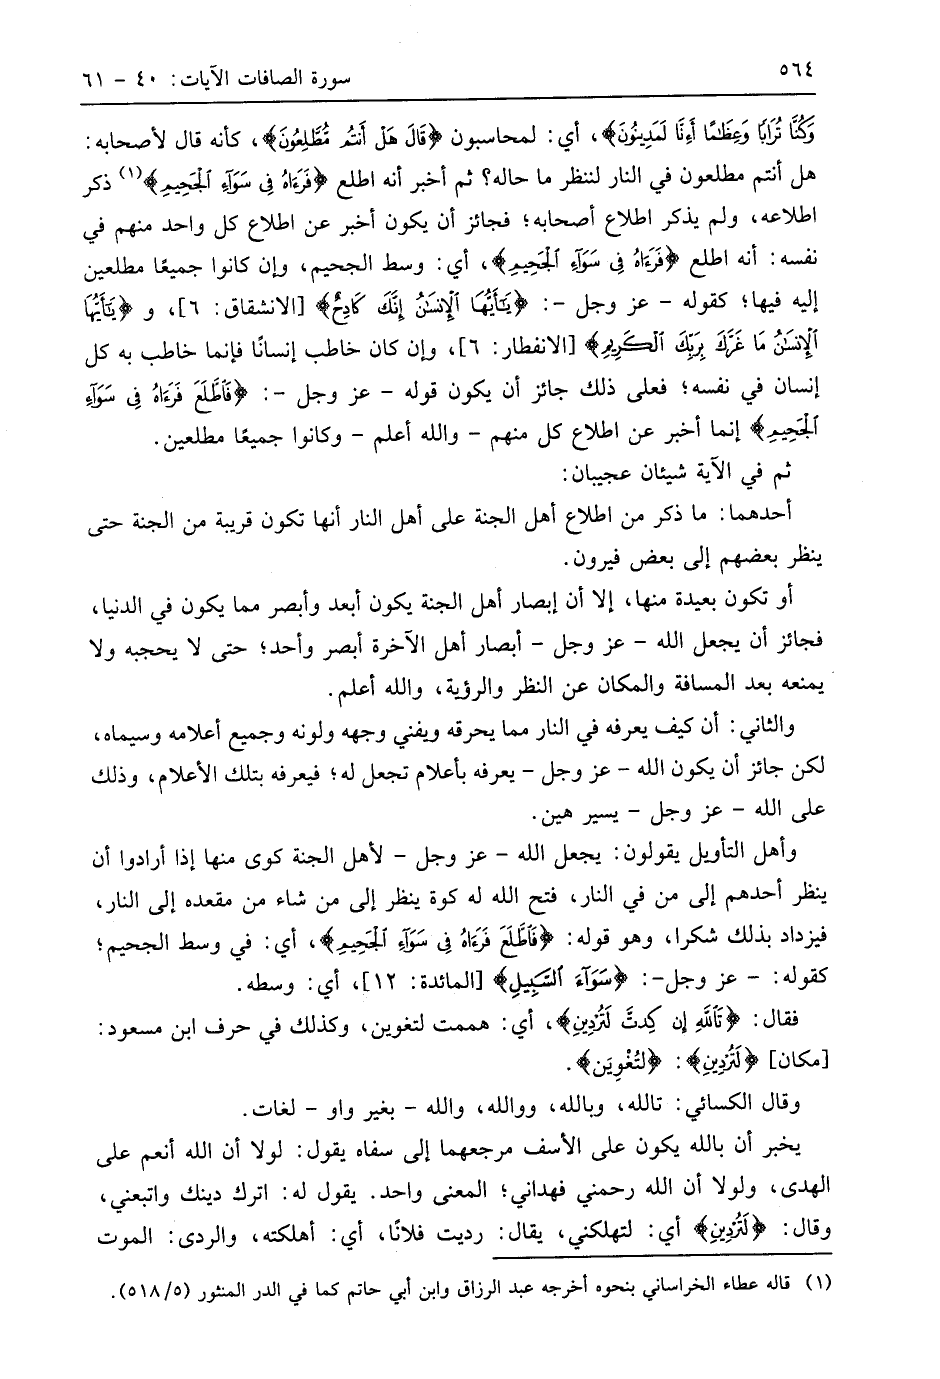 ٥٦٤
سورة الصافات الآيات: ٤٠ - ٦١
وَكُنَّا تُرَابًا وَعِظَٰمًا أَءِنَّا لَمَدِينُونَ﴾، أي: لمحاسبون ﴿قَالَ هَلْ أَنتُم مُّطَّلِعُونَ﴾، كأنه قال لأصحابه:
هل أنتم مطلعون في النار لننظر ما حاله؟ ثم أخبر أنه اطلع ﴿فَرَءَاهُ فِى سَوَآءِ ٱلْجَحِيمِ﴾(١) ذكر
اطلاعه، ولم يذكر اطلاع أصحابه؛ فجائز أن يكون أخبر عن اطلاع كل واحد منهم في
نفسه: أنه اطلع ﴿فَرَءَاهُ فِى سَوَآءِ ٱلْجَحِيمِ﴾، أي: وسط الجحيم، وإن كانوا جميعًا مطلعين
إليه فيها؛ كقوله - عز وجل -: ﴿يَٰٓأَيُّهَا ٱلْإِنسَٰنُ إِنَّكَ كَادِحٌ﴾ [الانشقاق: ٦]، و ﴿يَٰٓأَيُّهَا
ٱلْإِنسَٰنُ مَا غَرَّكَ بِرَبِّكَ ٱلْكَرِيمِ﴾ [الانفطار: ٦]، وإن كان خاطب إنسانًا فإنما خاطب به كل
إنسان في نفسه؛ فعلى ذلك جائز أن يكون قوله - عز وجل -: ﴿فَٱطَّلَعَ فَرَءَاهُ فِى سَوَآءِ
ٱلْجَحِيمِ﴾ إنما أخبر عن اطلاع كل منهم - والله أعلم - وكانوا جميعًا مطلعين.
ثم في الآية شيئان عجيبان:
أحدهما: ما ذكر من اطلاع أهل الجنة على أهل النار أنها تكون قريبة من الجنة حتى
ينظر بعضهم إلى بعض فيرون.
أو تكون بعيدة منها، إلا أن إبصار أهل الجنة يكون أبعد وأبصر مما يكون في الدنيا،
فجائز أن يجعل الله - عز وجل - أبصار أهل الآخرة أبصر وأحد؛ حتى لا يحجبه ولا
يمنعه بعد المسافة والمكان عن النظر والرؤية، والله أعلم.
والثاني: أن كيف يعرفه في النار مما يحرقه ويفني وجهه ولونه وجميع أعلامه وسيماه،
لكن جائز أن يكون الله - عز وجل - يعرفه بأعلام تجعل له؛ فيعرفه بتلك الأعلام، وذلك
على الله - عز وجل - يسير هين.
وأهل التأويل يقولون: يجعل الله - عز وجل - لأهل الجنة كوى منها إذا أرادوا أن
ينظر أحدهم إلى من في النار، فتح الله له كوة ينظر إلى من شاء من مقعده إلى النار،
فيزداد بذلك شكرا، وهو قوله: ﴿فَٱطَّلَعَ فَرَءَاهُ فِى سَوَآءِ ٱلْجَحِيمِ﴾، أي: في وسط الجحيم؛
كقوله: - عز وجل-: ﴿سَوَآءَ ٱلسَّبِيلِ﴾ [المائدة: ١٢]، أي: وسطه.
فقال: ﴿تَٱللَّهِ إِن كِدتَّ لَتُرْدِينِ﴾، أي: هممت لتغوين، وكذلك في حرف ابن مسعود:
[مكان] ﴿لَتُرْدِينِ﴾: ﴿لتُغْوِيَن﴾.
وقال الكسائي: تالله، وبالله، ووالله، والله - بغير واو - لغات.
يخبر أن بالله يكون على الأسف مرجعهما إلى سفاه يقول: لولا أن الله أنعم على
الهدى، ولولا أن الله رحمني فهداني؛ المعنى واحد. يقول له: اترك دينك واتبعني،
وقال: ﴿لَتُرْدِينِ﴾ أي: لتهلكني، يقال: رديت فلانًا، أي: أهلكته، والردى: الموت
(١) قاله عطاء الخراساني بنحوه أخرجه عبد الرزاق وابن أبي حاتم كما في الدر المنثور (٥١٨/٥).